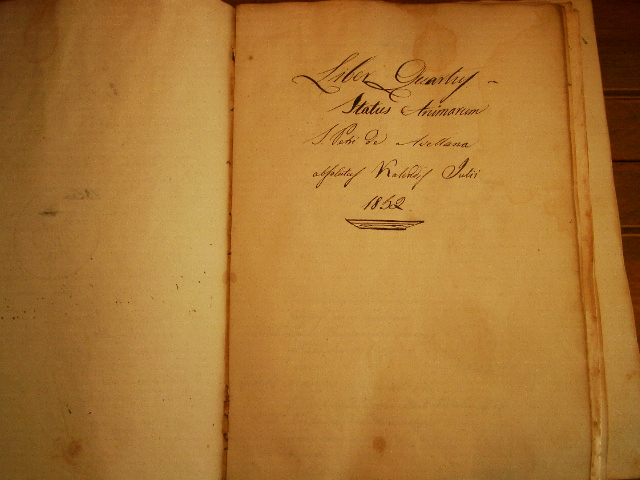 Liber Quartus
Status Animarum
S. Petri de Avellana
absolutus Kalendis Julii
1852